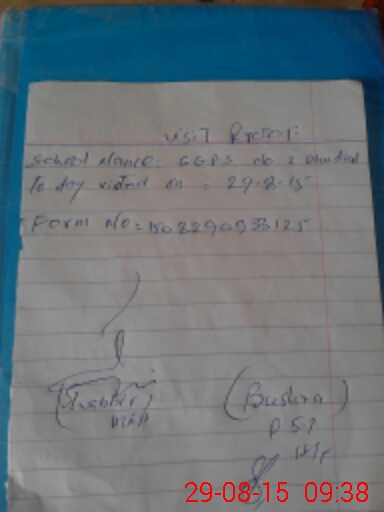 Visit Proof:
School Name: GGPS No 2
to day visited on : 29-8-15
Form No = 1502290933125
(Bushra)
PST
29-08-15 09:38